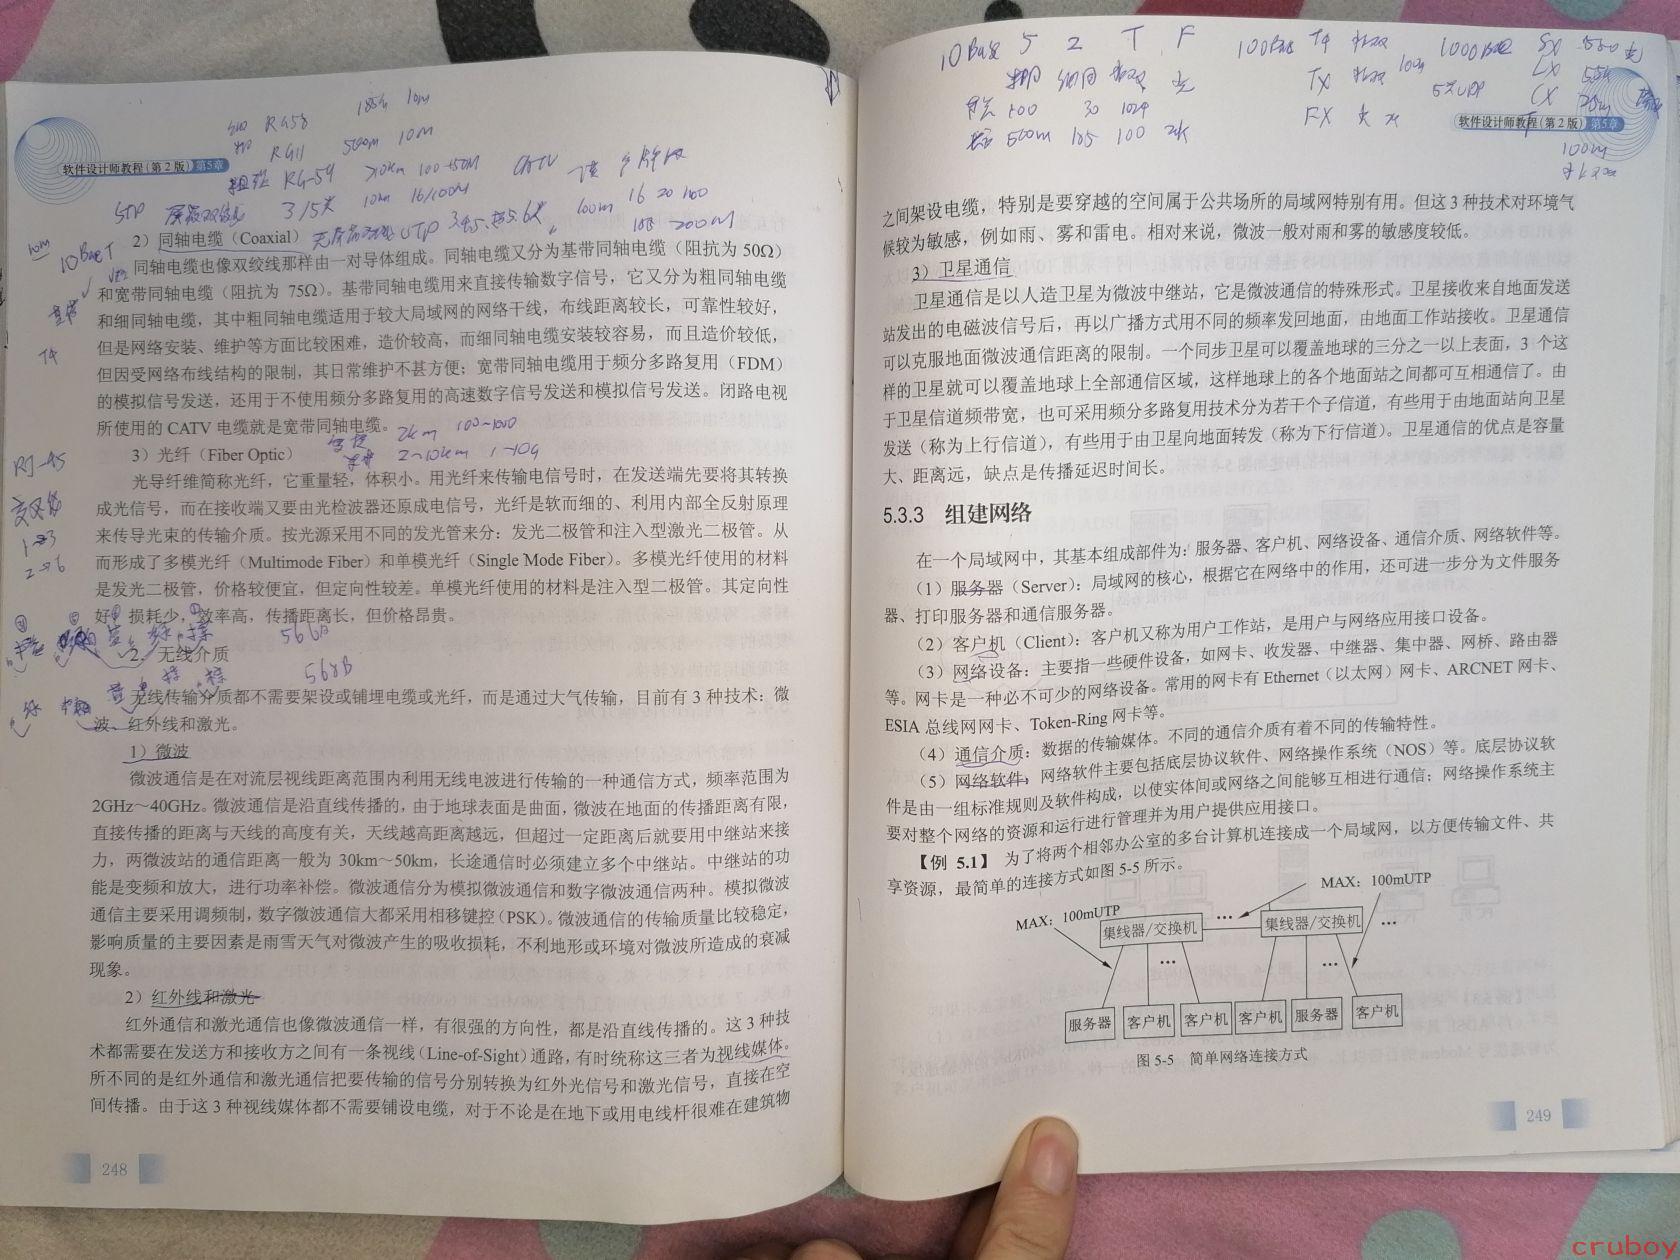 软件设计师教程（第2版）第5章
RG58 185m 10m
RG11 500m 10m
RG-59 100~150M CATV
STP 屏蔽双绞线 3/5类 16/100M
UTP 100m 16 20 100
10Base T
2）同轴电缆（Coaxial）
同轴电缆也像双绞线那样由一对导体组成。同轴电缆又分为基带同轴电缆（阻抗为 50Ω）
和宽带同轴电缆（阻抗为 75Ω）。基带同轴电缆用来直接传输数字信号，它又分为粗同轴电缆
和细同轴电缆，其中粗同轴电缆适用于较大局域网的网络干线，布线距离较长，可靠性较好，
但是网络安装、维护等方面比较困难，造价较高，而细同轴电缆安装较容易，而且造价较低，
但因受网络布线结构的限制，其日常维护不甚方便；宽带同轴电缆用于频分多路复用（FDM）
的模拟信号发送，还用于不使用频分多路复用的高速数字信号发送和模拟信号发送。闭路电视
所使用的 CATV 电缆就是宽带同轴电缆。
2km 100~1000
2~10km 1~10G
3）光纤（Fiber Optic）
光导纤维简称光纤，它重量轻，体积小。用光纤来传输电信号时，在发送端先要将其转换
成光信号，而在接收端又要由光检波器还原成电信号，光纤是软而细的、利用内部全反射原理
来传导光束的传输介质。按光源采用不同的发光管来分：发光二极管和注入型激光二极管。从
而形成了多模光纤（Multimode Fiber）和单模光纤（Single Mode Fiber）。多模光纤使用的材料
是发光二极管，价格较便宜，但定向性较差。单模光纤使用的材料是注入型二极管。其定向性
好，损耗少，效率高，传播距离长，但价格昂贵。
RJ-45
交叉线
1→3
2→6
568A
568B
2．无线介质
无线传输介质都不需要架设或铺埋电缆或光纤，而是通过大气传输，目前有 3 种技术：微
波、红外线和激光。
1）微波
微波通信是在对流层视线距离范围内利用无线电波进行传输的一种通信方式，频率范围为
2GHz～40GHz。微波通信是沿直线传播的，由于地球表面是曲面，微波在地面的传播距离有限，
直接传播的距离与天线的高度有关，天线越高距离越远，但超过一定距离后就要用中继站来接
力，两微波站的通信距离一般为 30km～50km，长途通信时必须建立多个中继站。中继站的功
能是变频和放大，进行功率补偿。微波通信分为模拟微波通信和数字微波通信两种。模拟微波
通信主要采用调频制，数字微波通信大都采用相移键控（PSK）。微波通信的传输质量比较稳定，
影响质量的主要因素是雨雪天气对微波产生的吸收损耗，不利地形或环境对微波所造成的衰减
现象。
2）红外线和激光
红外通信和激光通信也像微波通信一样，有很强的方向性，都是沿直线传播的。这 3 种技
术都需要在发送方和接收方之间有一条视线（Line-of-Sight）通路，有时统称这三者为视线媒体。
所不同的是红外通信和激光通信把要传输的信号分别转换为红外光信号和激光信号，直接在空
间传播。由于这 3 种视线媒体都不需要铺设电缆，对于不论是在地下或用电线杆很难在建筑物
248
10Base 5 2 T F 100Base T4 1000Base SX
粗同 细同 双绞 光 TX 100m 5类UTP LX
30 1024 FX CX
500m 185 100 2k
100m
软件设计师教程（第2版）第5章
之间架设电缆，特别是要穿越的空间属于公共场所的局域网特别有用。但这 3 种技术对环境气
候较为敏感，例如雨、雾和雷电。相对来说，微波一般对雨和雾的敏感度较低。
3）卫星通信
卫星通信是以人造卫星为微波中继站，它是微波通信的特殊形式。卫星接收来自地面发送
站发出的电磁波信号后，再以广播方式用不同的频率发回地面，由地面工作站接收。卫星通信
可以克服地面微波通信距离的限制。一个同步卫星可以覆盖地球的三分之一以上表面，3 个这
样的卫星就可以覆盖地球上全部通信区域，这样地球上的各个地面站之间都可互相通信了。由
于卫星信道频带宽，也可采用频分多路复用技术分为若干个子信道，有些用于由地面站向卫星
发送（称为上行信道），有些用于由卫星向地面转发（称为下行信道）。卫星通信的优点是容量
大、距离远，缺点是传播延迟时间长。
5.3.3 组建网络
在一个局域网中，其基本组成部件为：服务器、客户机、网络设备、通信介质、网络软件等。
（1）服务器（Server）：局域网的核心，根据它在网络中的作用，还可进一步分为文件服务
器、打印服务器和通信服务器。
（2）客户机（Client）：客户机又称为用户工作站，是用户与网络应用接口设备。
（3）网络设备：主要指一些硬件设备，如网卡、收发器、中继器、集中器、网桥、路由器
等。网卡是一种必不可少的网络设备。常用的网卡有 Ethernet（以太网）网卡、ARCNET 网卡、
ESIA 总线网网卡、Token-Ring 网卡等。
（4）通信介质：数据的传输媒体。不同的通信介质有着不同的传输特性。
（5）网络软件：网络软件主要包括底层协议软件、网络操作系统（NOS）等。底层协议软
件是由一组标准规则及软件构成，以使实体间或网络之间能够互相进行通信；网络操作系统主
要对整个网络的资源和运行进行管理并为用户提供应用接口。
【例 5.1】 为了将两个相邻办公室的多台计算机连接成一个局域网，以方便传输文件、共
享资源，最简单的连接方式如图 5-5 所示。
MAX：100mUTP MAX：100mUTP
集线器/交换机 … 集线器/交换机 …
… …
服务器 客户机 客户机 客户机 服务器 客户机
图 5-5 简单网络连接方式
249
cruboy